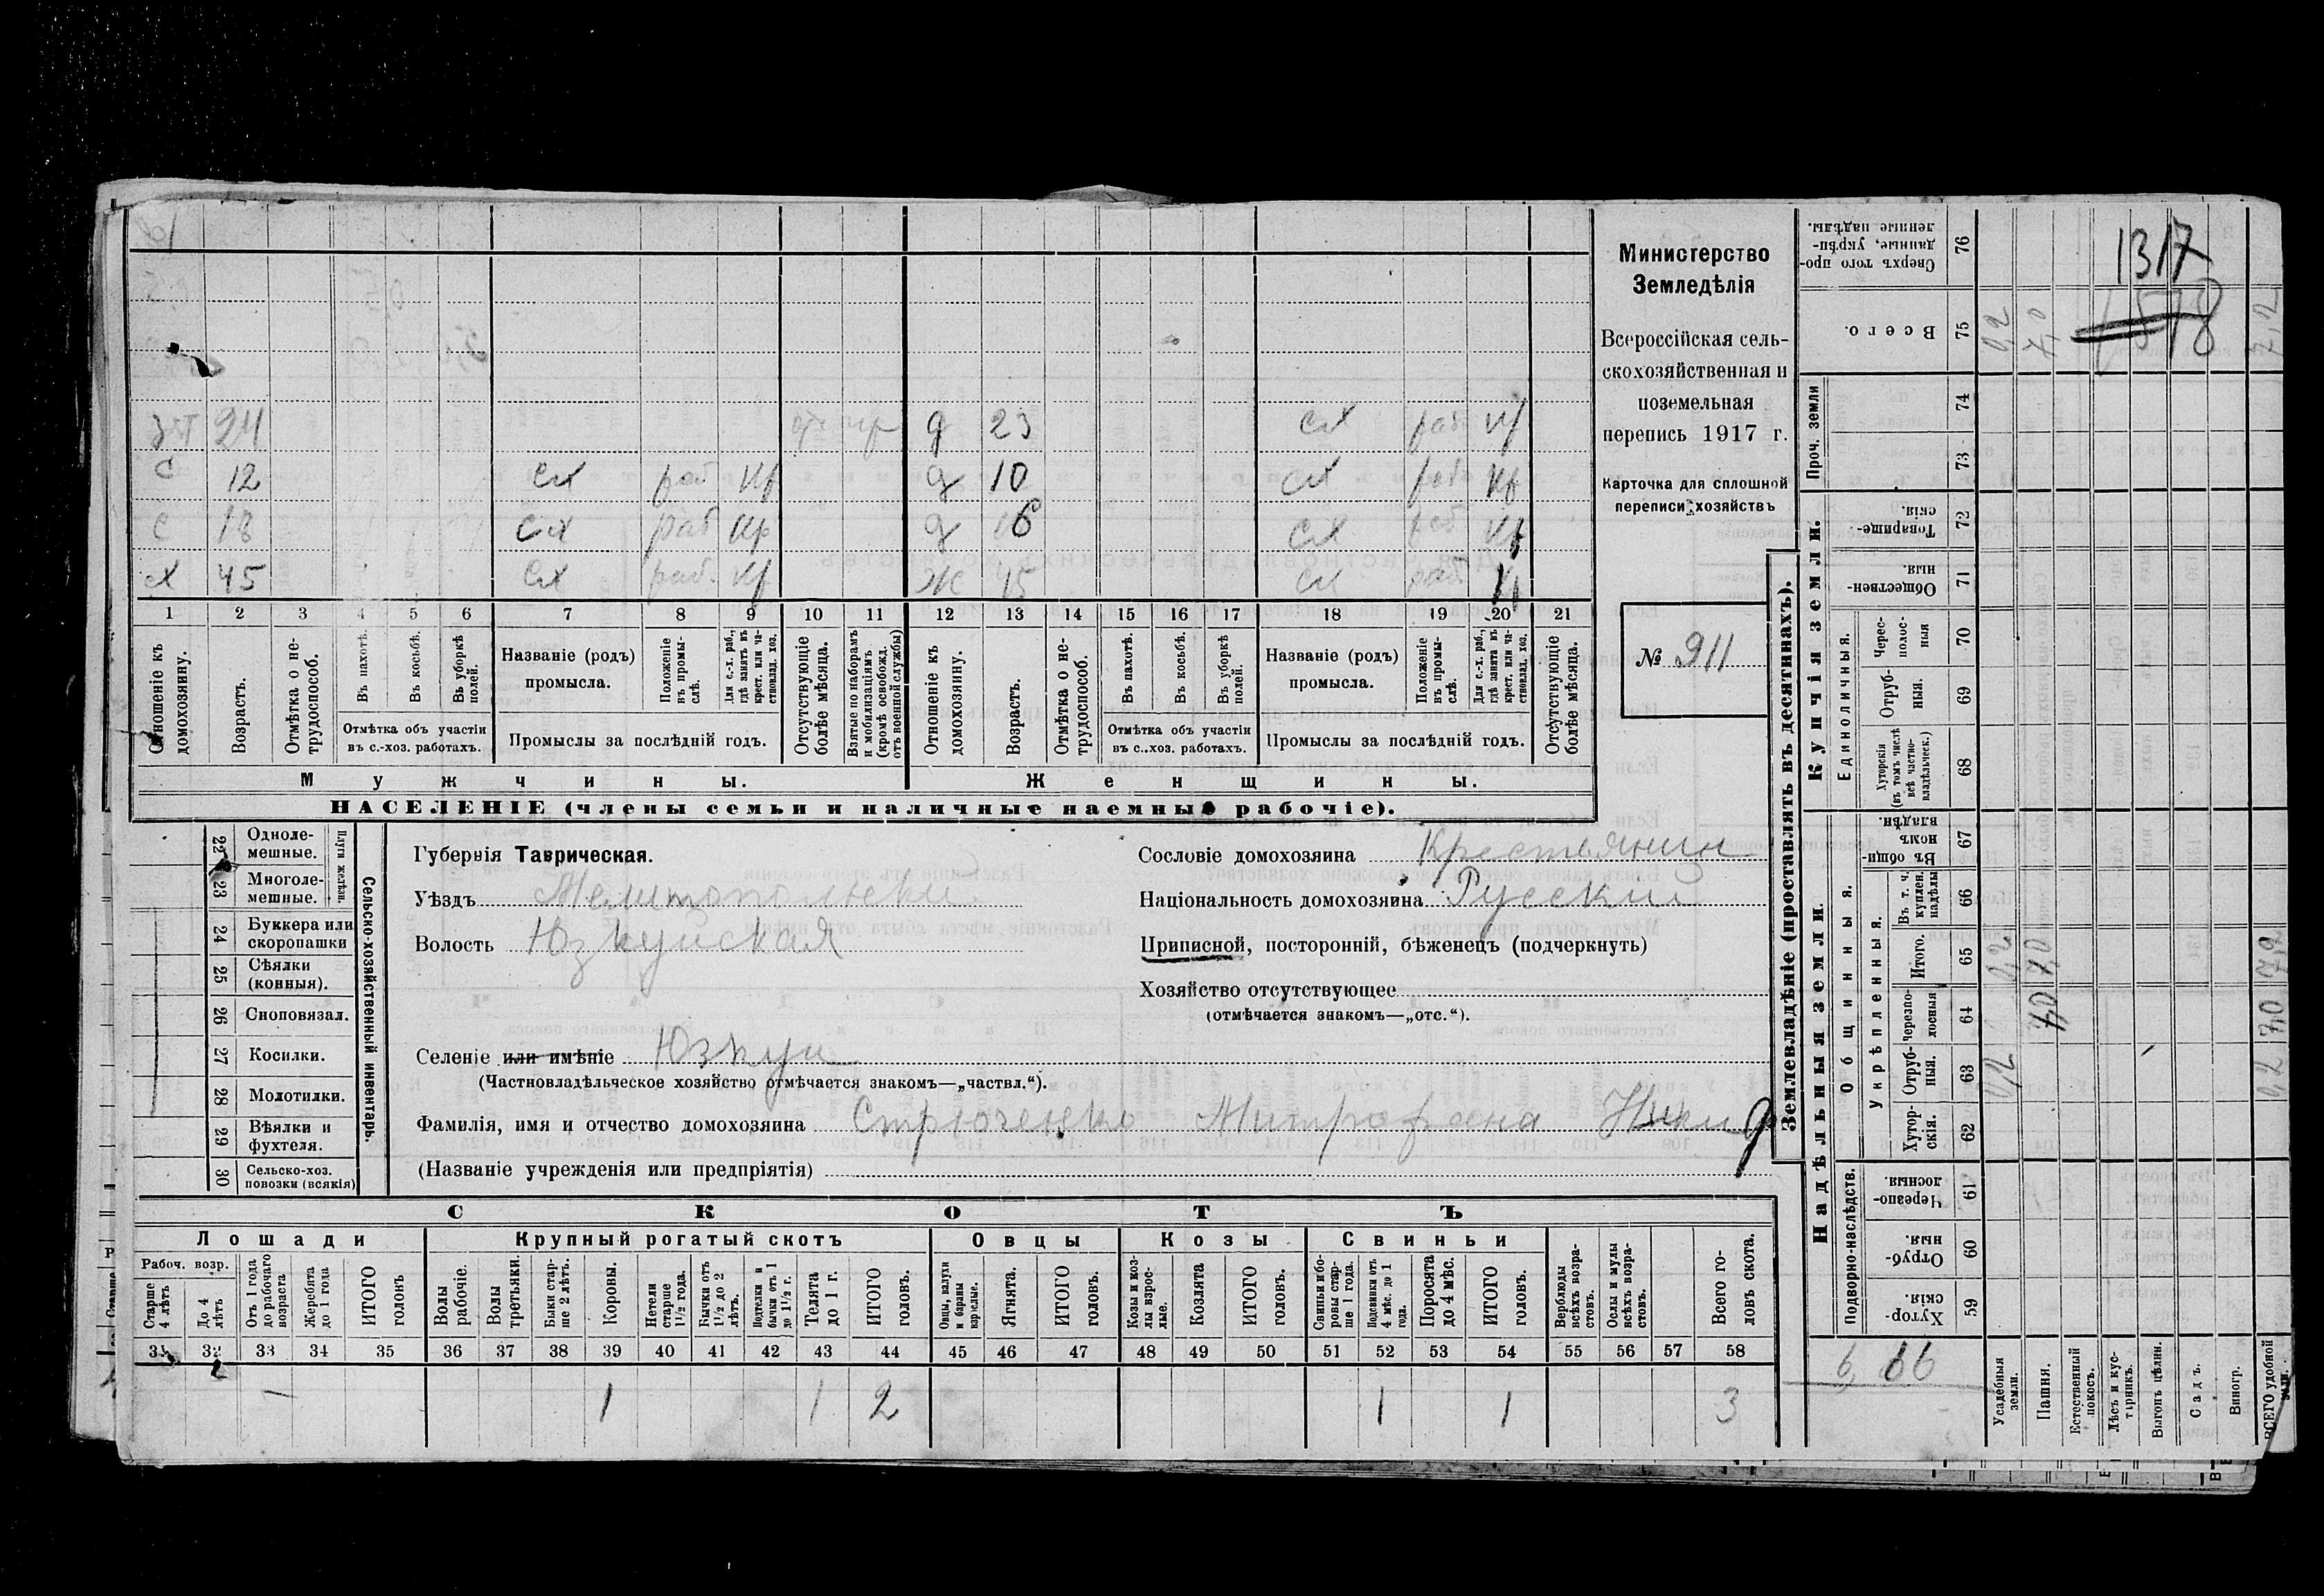 зят 24 отс пр д 23 сх раб. кр
с 12 сх раб кр д 10 сх раб. кр
с 18 сх раб кр д 6 сх раб кр
х 45 сх раб. кр ж 45 сх раб кр
1 2 3 4 5 6 7 8 9 10 11 12 13 14 15 16 17 18 19 20 21
Отношеніе къ домохозяину.
Возрастъ.
Отмѣтка о нетрудоспособ.
Въ пахотѣ.
Въ косьбѣ.
Въ уборкѣ полей.
Отмѣтка объ участіи
въ с.-хоз. работахъ.
Названіе (родъ)
промысла.
Положеніе въ промыслѣ.
Для с.-х. раб., гдѣ занятъ въ крест. или частновлад. хоз.
Промыслы за послѣдній годъ.
Отсутствующіе болѣе мѣсяца.
Взятые по наборамъ и мобилизаціямъ (кромѣ освобожд. отъ военной службы)
Отношеніе къ домохозяину.
Возрастъ.
Отмѣтка о нетрудоспособ.
Въ пахотѣ.
Въ косьбѣ.
Въ уборкѣ полей.
Отмѣтка объ участіи
въ с.-хоз. работахъ.
Названіе (родъ)
промысла.
Положеніе въ промыслѣ.
Для с.-х. раб., гдѣ занята въ крест. или частновлад. хоз.
Промыслы за послѣдній годъ.
Отсутствующіе болѣе мѣсяца.
Мужчины. Женщины.
НАСЕЛЕНІЕ (члены семьи и наличные наемные рабочіе).
Министерство
Земледѣлія
Всероссійская сель-
скохозяйственная и
поземельная
перепись 1917 г.
Карточка для сплошной
переписи хозяйствъ
№ 911
22 Одноле-
мешные.
23 Многоле-
мешные.
Плуги желѣзн.
24 Буккера или
скоропашки
25 Сѣялки
(конныя).
26 Сноповязал.
27 Косилки.
28 Молотилки.
29 Вѣялки и
фухтеля.
30 Сельско-хоз.
повозки (всякія)
Сельско-хозяйственный инвентарь.
Губернія Таврическая.
Уѣздъ Мелитопольскій
Волость Юзкуйская
Сословіе домохозяина Крестьянин
Національность домохозяина Русский
Приписной, посторонній, бѣженецъ (подчеркнуть)
Хозяйство отсутствующее
(отмѣчается знакомъ—„отс.“).
Селеніе или имѣніе Юзкуи
(Частновладѣльческое хозяйство отмѣчается знакомъ—„частвл.“).
Фамилія, имя и отчество домохозяина Стрюченко Митрофана Никиф
(Названіе учрежденія или предпріятія)
СКОТЪ
Лошади Крупный рогатый скотъ Овцы Козы Свиньи
Рабоч. возр.
Старше 4 лѣтъ
До 4 лѣтъ
Отъ 1 года до рабочаго возраста
Жеребята до 1 года
ИТОГО головъ
Волы рабочіе.
Волы третьяки.
Быки старше 2 лѣтъ.
Коровы.
Нетели старше 1½ года.
Бычки отъ 1½ до 2 лѣтъ.
Подтелки и бычки отъ 1 до 1½ г.
Телята до 1 г.
ИТОГО головъ.
Овцы, валухи и бараны взрослые.
Ягнята.
ИТОГО головъ.
Козы и козлы взрослые.
Козлята
ИТОГО головъ.
Свиньи и боровы старше 1 года.
Подсвинки отъ 4 мѣс. до 1 года.
Поросята до 4 мѣс.
ИТОГО головъ.
Верблюды всѣхъ возрастовъ.
Ослы и мулы всѣхъ возрастовъ.
Всего головъ скота.
31 32 33 34 35 36 37 38 39 40 41 42 43 44 45 46 47 48 49 50 51 52 53 54 55 56 57 58
— 1 1 2 1 1 3
Землевладѣніе (проставлять въ десятинахъ).
Надѣльныя земли.
Купчія земли.
Проч. земли
Подворно-наслѣдств.
Общинныя.
Укрѣпленныя.
Единоличныя.
Сверхъ того проданные, укрѣпленные надѣлы. 76
Всего. 75 0,2 7,0 7,2
74
73
Товарищескія. 72
Общественныя. 71
Чересполосныя 70
Отрубныя. 69
Хуторскія (въ томъ числѣ всѣ частновладѣльческ.) 68
Въ общинномъ владѣн. 67
Въ т. ч. куплен. надѣлы 66
Итого. 65 0,2 7,0 7,2
Черезполосныя 64 7,0 7,0
Отрубныя. 63 0,2 0,2
Хуторскія. 62
Черезполосныя. 61
Отрубныя. 60
Хуторскія. 59
Усадебныя земли.
Пашня.
Естественный покосъ.
Лѣсъ и кустарникъ.
Выгонъ цѣлин.
Садъ.
Виногр.
ВСЕГО удобной земли.
1317